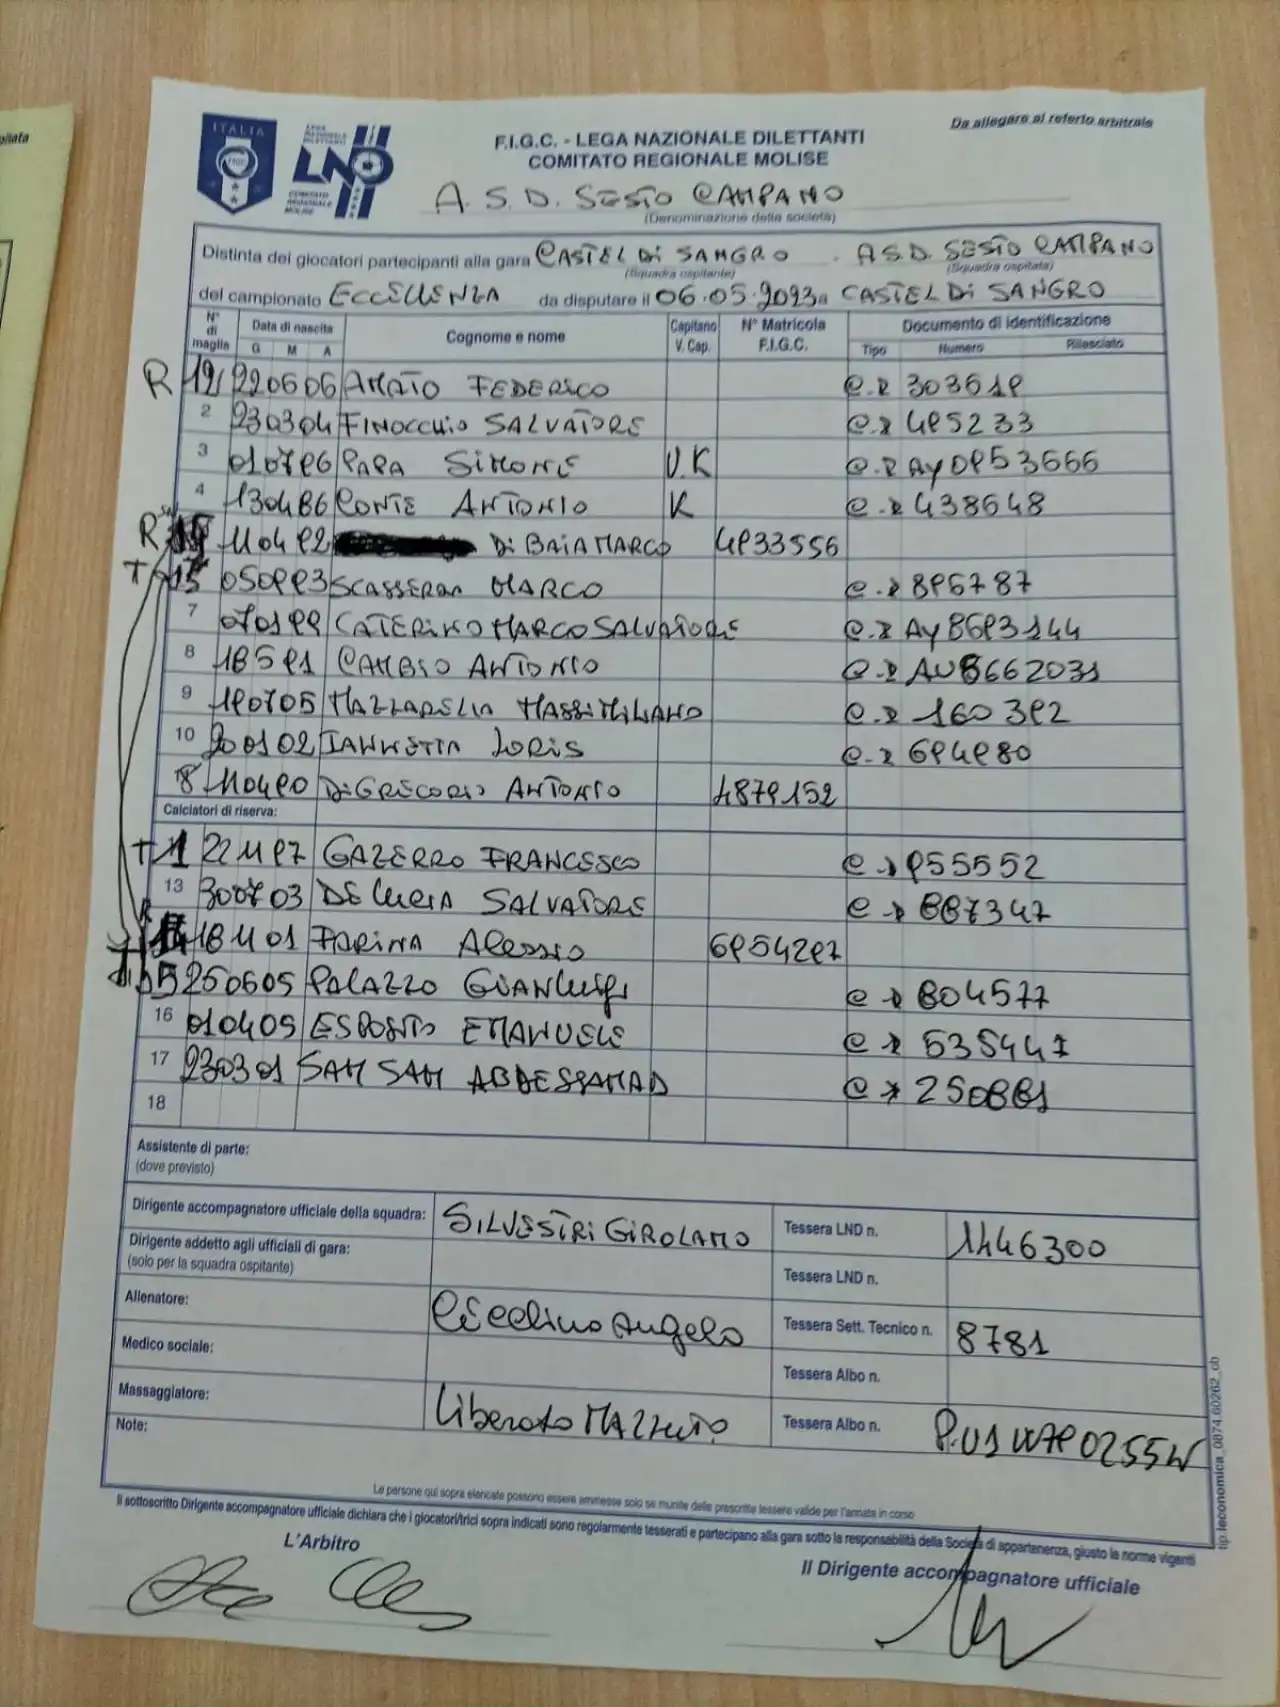 pilata
Da allegare al referto arbitrale
ITALIA
FIGC
LEGA NAZIONALE DILETTANTI
LND
COMITATO REGIONALE MOLISE
F.I.G.C. - LEGA NAZIONALE DILETTANTI
COMITATO REGIONALE MOLISE
A.S.D. SESTO CAMPANO
(Denominazione della società)
Distinta dei giocatori partecipanti alla gara CASTEL DI SANGRO - A.S.D. SESTO CAMPANO
(Squadra ospitante) (Squadra ospitata)
del campionato ECCELLENZA da disputare il 06.05.2023 a CASTEL DI SANGRO
N° di maglia Data di nascita G M A Cognome e nome Capitano V. Cap. N° Matricola F.I.G.C. Documento di identificazione Tipo Numero Rilasciato
R 12 220606 AMATO FEDERICO 303619
2 230304 FINOCCHIO SALVATORE 495233
3 010796 PAPA SIMONE V.K AY0953666
4 130486 CONTE ANTONIO K 438648
R 110492 DI BAIA MARCO 4933556
T 15 050993 SCASSERRA MARCO 895787
7 070199 CATERINO MARCO SALVATORE AY8693144
8 18591 CAMBIO ANTONIO AU8662031
9 190705 MAZZARELLA MASSIMILIANO 160392
10 200102 IANNETTA LORIS 694980
8 110490 DI GREGORIO ANTONIO 4879152
Calciatori di riserva:
T 1 221197 GAZERRO FRANCESCO 955552
13 300703 DE LUCIA SALVATORE 887347
14 181101 FARINA Alessio 6954297
15 250605 PALAZZO GIANLUIGI 804577
16 010405 ESPOSITO EMANUELE 535447
17 230301 SAM SAM ABDESSAMAD 250881
18
Assistente di parte:
(dove previsto)
Dirigente accompagnatore ufficiale della squadra: SILVESTRI GIROLAMO Tessera LND n. 1446300
Dirigente addetto agli ufficiali di gara: Tessera LND n.
(solo per la squadra ospitante)
Allenatore: Angelo Tessera Sett. Tecnico n. 8781
Medico sociale: Tessera Albo n.
Massaggiatore: Liberato Tessera Albo n.
Note:
Le persone qui sopra elencate possono essere ammesse solo se munite delle prescritte tessere valide per l'annata in corso
Il sottoscritto Dirigente accompagnatore ufficiale dichiara che i giocatori/trici sopra indicati sono regolarmente tesserati e partecipano alla gara sotto la responsabilità della Società di appartenenza, giusto le norme vigenti
L'Arbitro
Il Dirigente accompagnatore ufficiale
tip.leconomica_0874.60262_cb